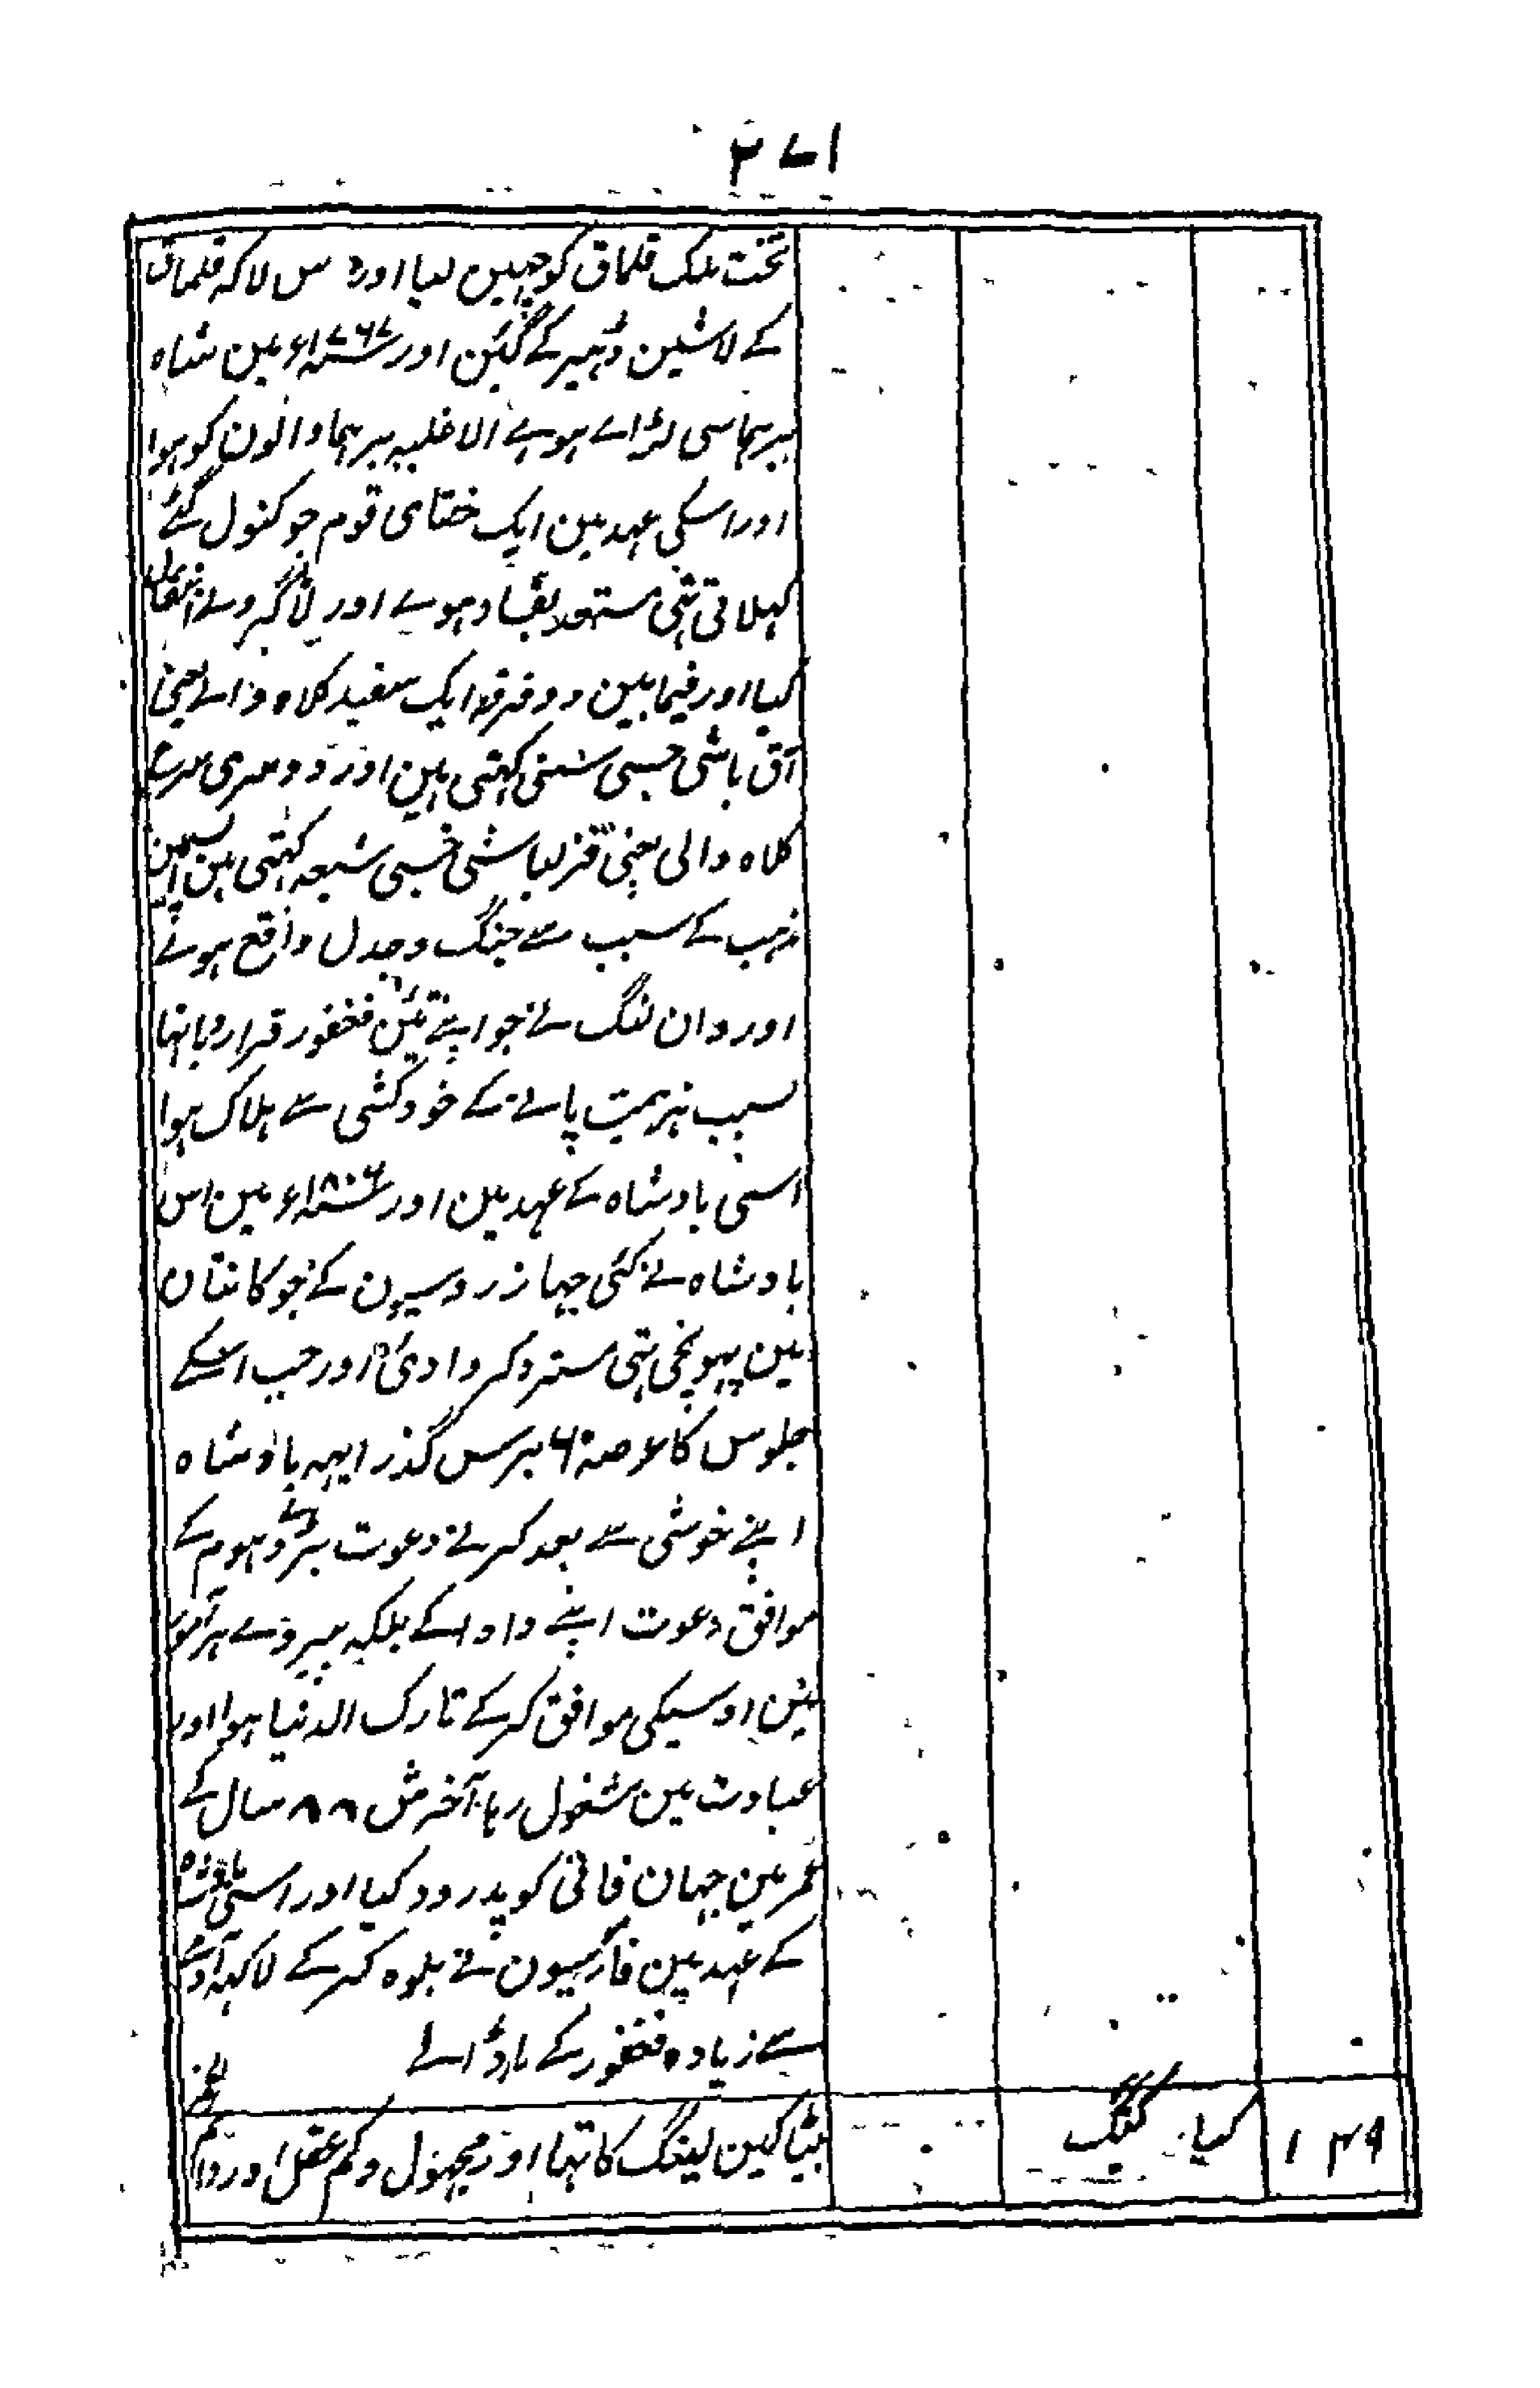 ۲۷۱
تخت ملک قلماق کو چہین لیا اور دس لاکہ قلماق
کے لاشین ڈہیر کے گئین اور ۱۷۶۷ء مین شاہ
برہما سی لڑاے ہوے الا غلبہ برہما والون کو ہوا
اور اسکی عہد مین ایک ختای قوم جو کنول گئے
کہلاتی تہی مستعد بفساد ہوے اور
کیا اور فیما بین دو فرقہ ایک سفید کلاہ والے یعنی
آق باشی جسی سنی کہتی ہین اور دوسری سرخ
کلاہ والی یعنی قزلباشی جسی شیعہ کہتی ہین
مذہب کے سبب سے جنگ و جدل واقع ہوئے
اور وان لنگ نے جو اپنے تئین فغفور قرار دیا تہا
بسبب ہزیمت پانے کے خودکشی سے ہلاک ہوا
اسی بادشاہ کے عہد مین اور ۱۸۰۶ء مین اس
بادشاہ نے کئی جہاز روسیون کے جو کانتان
مین پہونچی تہی مسترد کروادئ اور جب اسکے
جلوس کا عرصہ ۶۰ برس گذرا یہہ بادشاہ
اپنے خوشی سے بعد کرنے دعوت بڑے دہوم کے
موافق دعوت اپنے دادا کے بلکہ پیروے ہر امور
مین اوسیکی موافق کرکے تارک الدنیا ہوا اور
عبادت مین مشغول رہا آخرش ۸۸ سال کے
عمر مین جہان فانی کو پدرود کیا اور اسی بادشاہ
کے عہد مین فارسیون نے بلوہ کرکے لاکہہ آدمی
سے زیادہ فغفور کے مار ڈالے
۱۴۹ کیا کنگ بیٹا کین لینگ کا تہا اور مجہول و کم عقل اور دائم